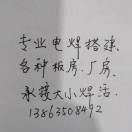 专业电焊搭建
各种板房.厂房.
承接大小焊活
13863508492